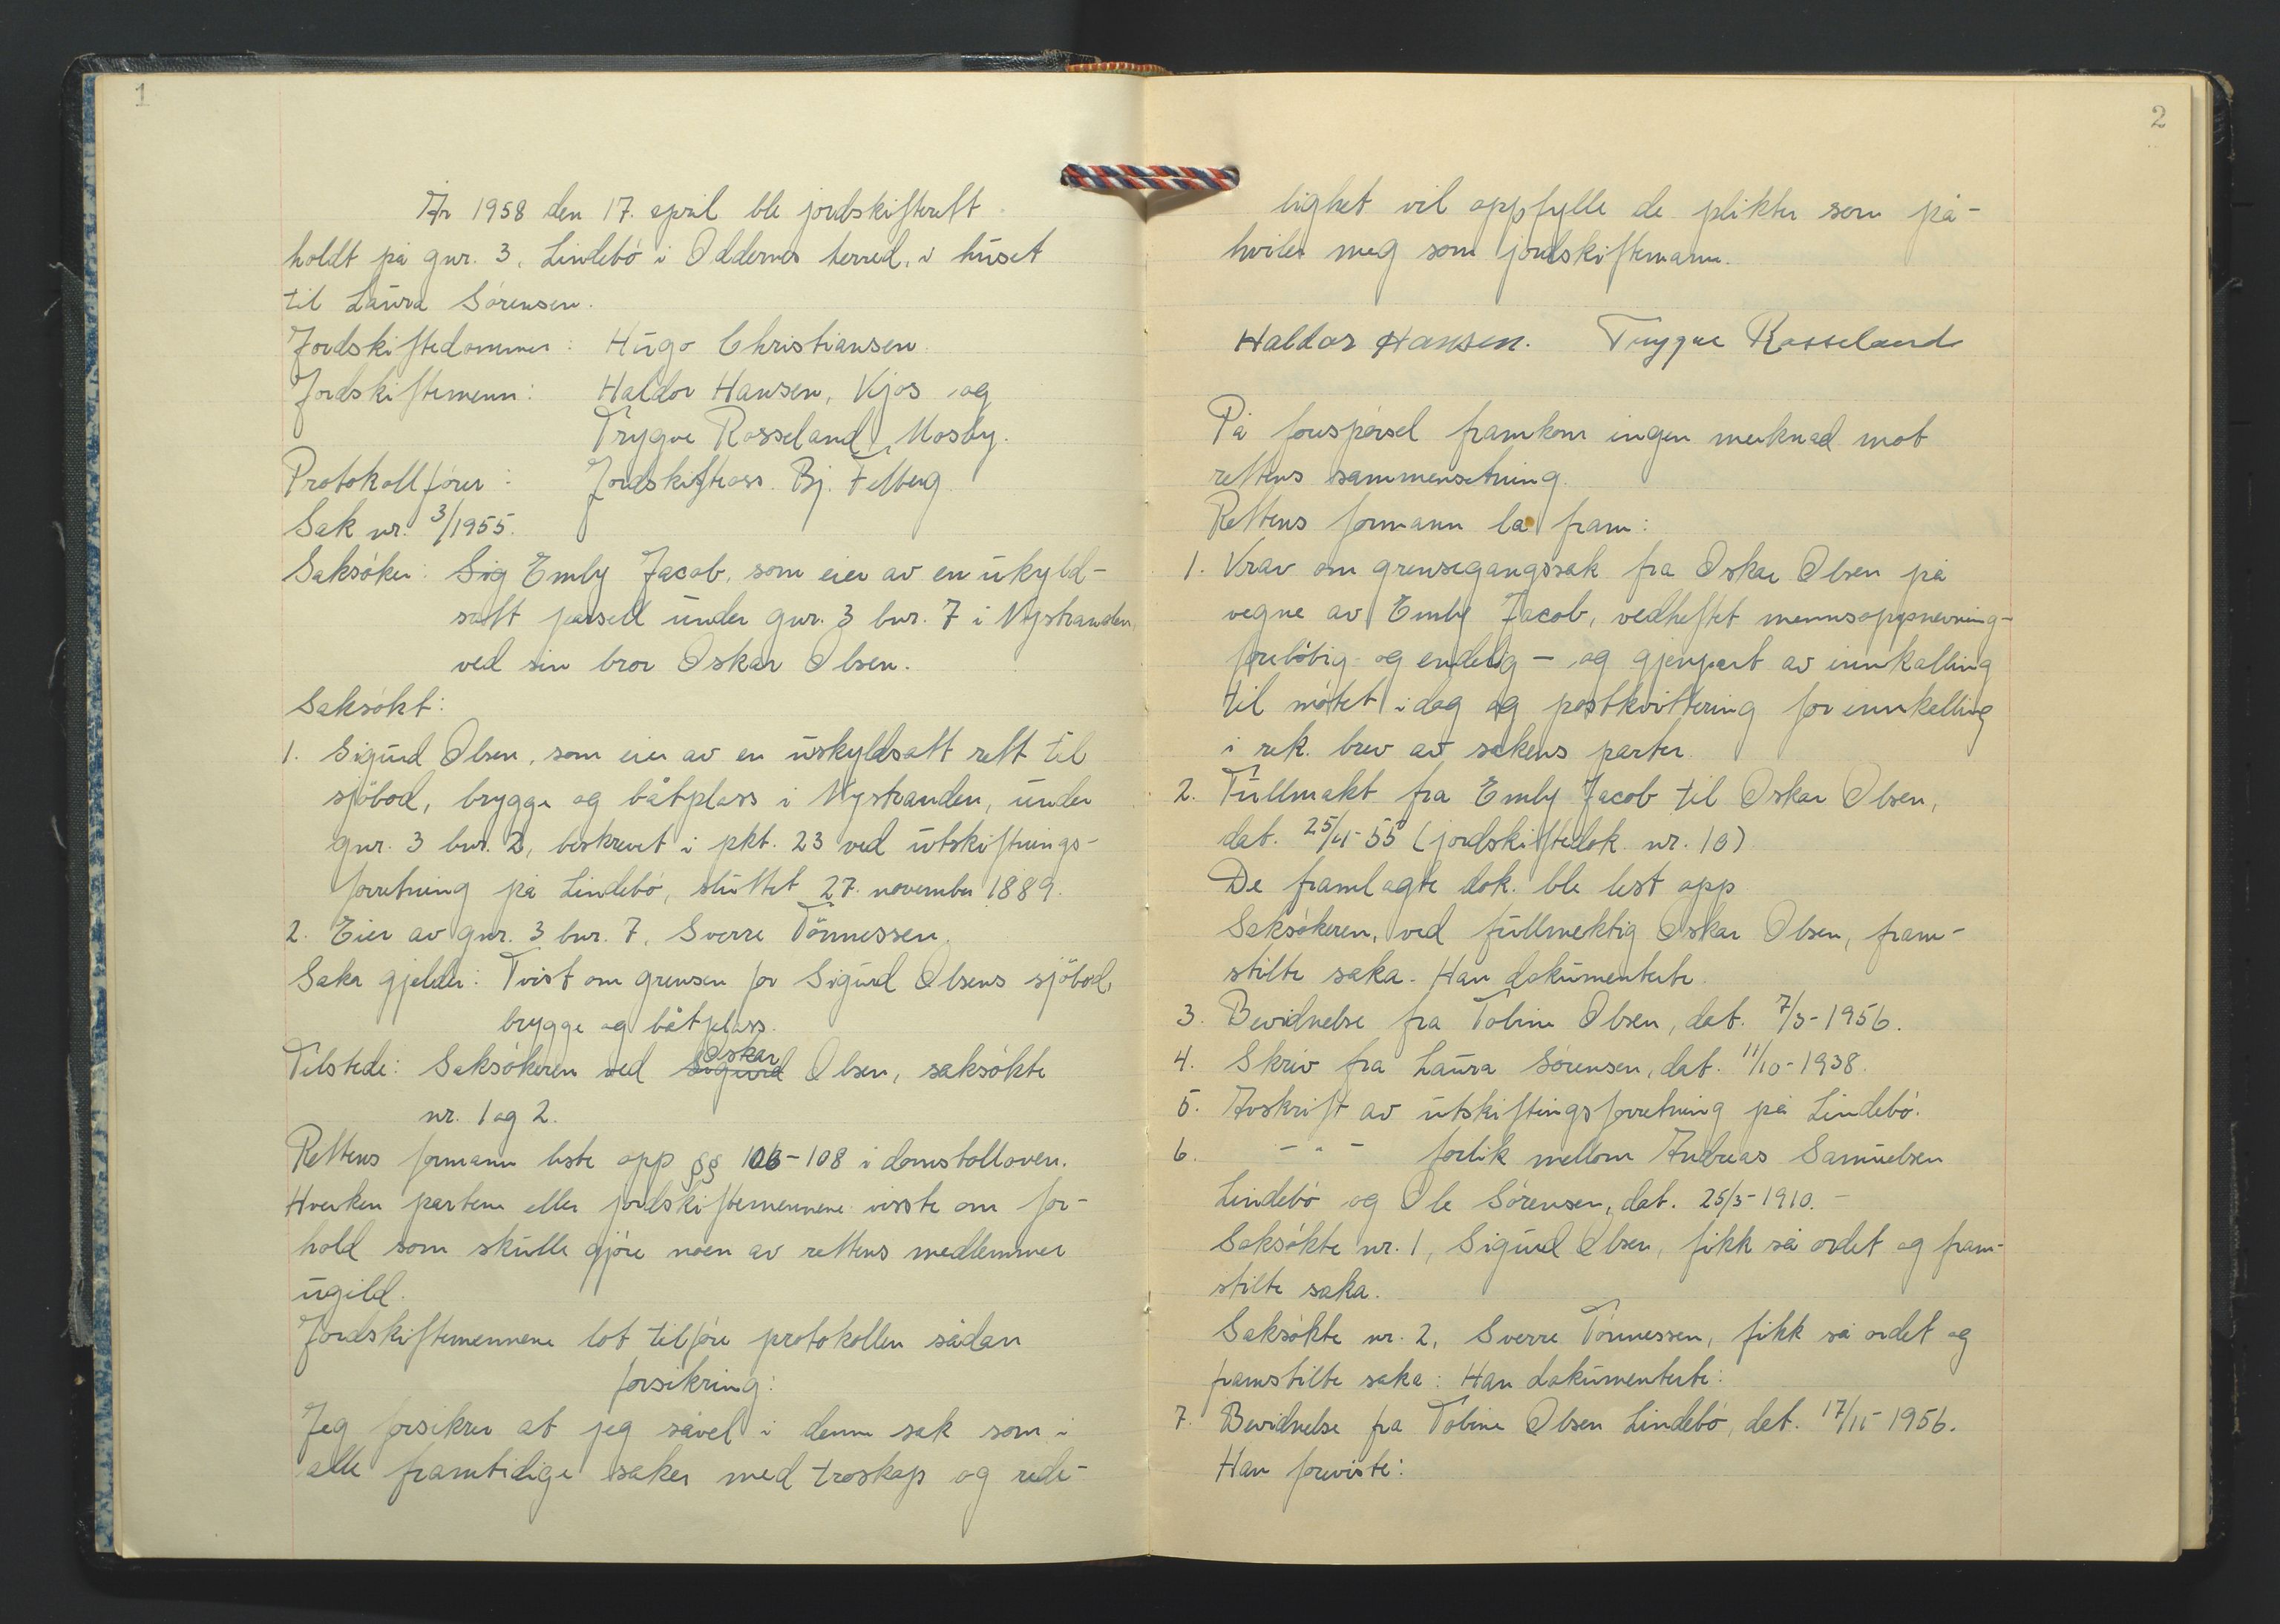 1
År 1958 den 17. april ble jordskifterett
holdt på gnr. 3, Lindebö i Oddernes herred, i huset
til Laura Sörensen.
Jordskiftedommer: Hugo Christiansen
Jordskiftemenn: Haldor Hansen, Kjos og
Trygve Rosseland, Mosby.
Protokollförer: Jordskifteass. Bj. Fetberg
Sak nr. 3/1955.
Saksöker: Sig Emly Jacob, som eier av en uskyld-
satt parsell under gnr. 3 bnr. 7 i Nystranden
ved sin bror Oskar Olsen.
Saksökt:
1. Sigurd Olsen, som eier av en uskyldsatt rett til
sjöbod, brygge og båtplass i Nystranden, under
gnr. 3 bnr. 2, beskrevet i pkt. 23 ved utskiftnings-
forretning på Lindebö, sluttet 27. november 1889.
2. Eier av gnr. 3 bnr. 7, Sverre Tönnessen.
Saka gjelder: Tvist om grensen for Sigurd Olsens sjöbod,
brygge og båtplass.
Tilstede: Saksökeren ved Sigurd Oskar Olsen, saksökte
nr. 1 og 2.
Rettens formann leste opp §§ 106-108 i domstolloven.
Hverken partene eller jordskiftemennene visste om for-
hold som skulle gjöre noen av rettens medlemmer
ugild.
Jordskiftemennene lot tilföre protokollen sådan
forsikring:
Jeg forsikrer at jeg såvel i denne sak som i
alle framtidige saker med troskap og rede-
2
lighet vil oppfylle de plikter som på-
hviler meg som jordskiftemann.
Haldor Hansen. Trygve Rosseland
På forespörsel framkom ingen merknad mot
rettens sammensetning.
Rettens formann la fram:
1. Krav om grensegangssak fra Oskar Olsen på
vegne av Emly Jacob, vedheftet mennsoppnevning-
forelöbig og endelig - og gjenpart av innkalling
til mötet i dag og postkvittering for innkalling
i rek. brev av sakens parter.
2. Fullmakt fra Emly Jacob til Oskar Olsen,
dat. 25/4-55 (jordskiftedok. nr. 10)
De framlagte dok. ble lest opp
Saksökeren, ved fullmektig Oskar Olsen, fram-
stilte saka. Han dokumenterte.
3. Bevidnelse fra Tobine Olsen, dat. 7/5-1956.
4. Skriv fra Laura Sörensen, dat. 11/10-1938.
5. Avskrift av utskiftingsforretning på Lindebö.
6. - " - forlik mellom Andreas Samuelsen
Lindebö og Ole Sörensen, dat. 25/5-1910. -
Saksökte nr. 1, Sigurd Olsen, fikk så ordet og fram-
stilte saka.
Saksökte nr. 2, Sverre Tönnessen, fikk så ordet og
framstilte saka: Han dokumenterte:
7. Bevidnelse fra Tobine Olsen Lindebö, dat. 17/11-1956.
Han foreviste: